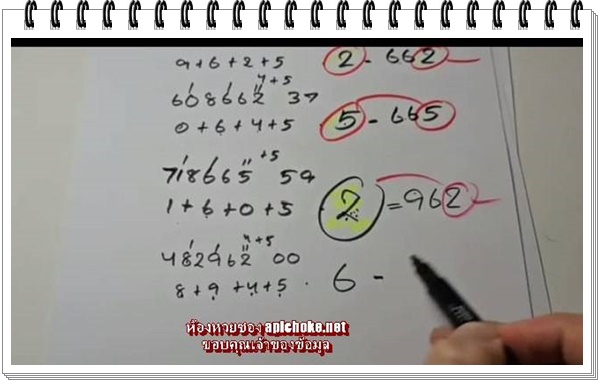 9+6+2+5 2 - 662
4+5
608662 37
0+6+4+5 5 - 665
+5
718665 59
1+6+0+5 2 = 962
4+5
482962 00
8+9+4+5 . 6 -
ห้องหวยซอง aplchoke.net
ขอบคุณเจ้าของข้อมูล